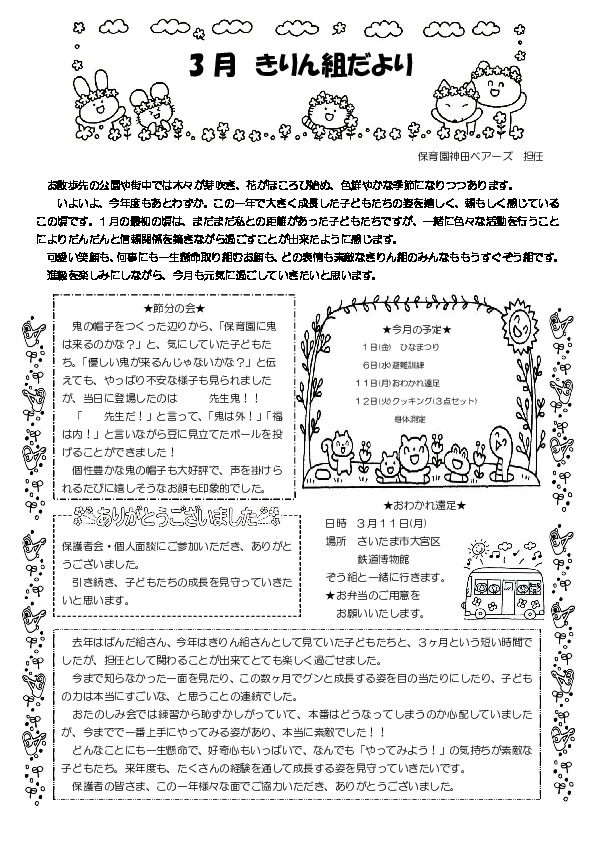 3月 きりん組だより
保育園神田ベアーズ 担任
お散歩先の公園や街中では木々が芽吹き、花がほころび始め、色鮮やかな季節になりつつあります。
いよいよ、今年度もあとわずか。この一年で大きく成長した子どもたちの姿を嬉しく、頼もしく感じている
この頃です。１月の最初の頃は、まだまだ私との距離があった子どもたちですが、一緒に色々な活動を行うこと
によりだんだんと信頼関係を築きながら過ごすことが出来たように感じます。
可愛い笑顔も、何事にも一生懸命取り組むお顔も、どの表情も素敵なきりん組のみんなももうすぐぞう組です。
進級を楽しみにしながら、今月も元気に過ごしていきたいと思います。
★節分の会★
鬼の帽子をつくった辺りから、「保育園に鬼
は来るのかな？」と、気にしていた子どもた
ち。「優しい鬼が来るんじゃないかな？」と伝
えても、やっぱり不安な様子も見られました
が、当日に登場したのは　　先生鬼！！
「　　先生だ！」と言って、「鬼は外！」「福
は内！」と言いながら豆に見立てたボールを投
げることができました！
個性豊かな鬼の帽子も大好評で、声を掛けら
れるたびに嬉しそうなお顔も印象的でした。
★今月の予定★
１日(金) ひなまつり
６日(水)避難訓練
１１日(月)おわかれ遠足
１２日(火)クッキング(３点セット)
身体測定
ありがとうございました
保護者会・個人面談にご参加いただき、ありがと
うございました。
引き続き、子どもたちの成長を見守っていきた
いと思います。
★おわかれ遠足★
日時　３月１１日(月)
場所　さいたま市大宮区
鉄道博物館
ぞう組と一緒に行きます。
★お弁当のご用意を
お願いいたします。
去年はぱんだ組さん、今年はきりん組さんとして見ていた子どもたちと、３ヶ月という短い時間で
したが、担任として関わることが出来てとても楽しく過ごせました。
今まで知らなかった一面を見たり、この数ヶ月でグンと成長する姿を目の当たりにしたり、子ども
の力は本当にすごいな、と思うことの連続でした。
おたのしみ会では練習から恥ずかしがっていて、本番はどうなってしまうのか心配していました
が、今までで一番上手にやってみる姿があり、本当に素敵でした！！
どんなことにも一生懸命で、好奇心もいっぱいで、なんでも「やってみよう！」の気持ちが素敵な
子どもたち。来年度も、たくさんの経験を通して成長する姿を見守っていきたいです。
保護者の皆さま、この一年様々な面でご協力いただき、ありがとうございました。